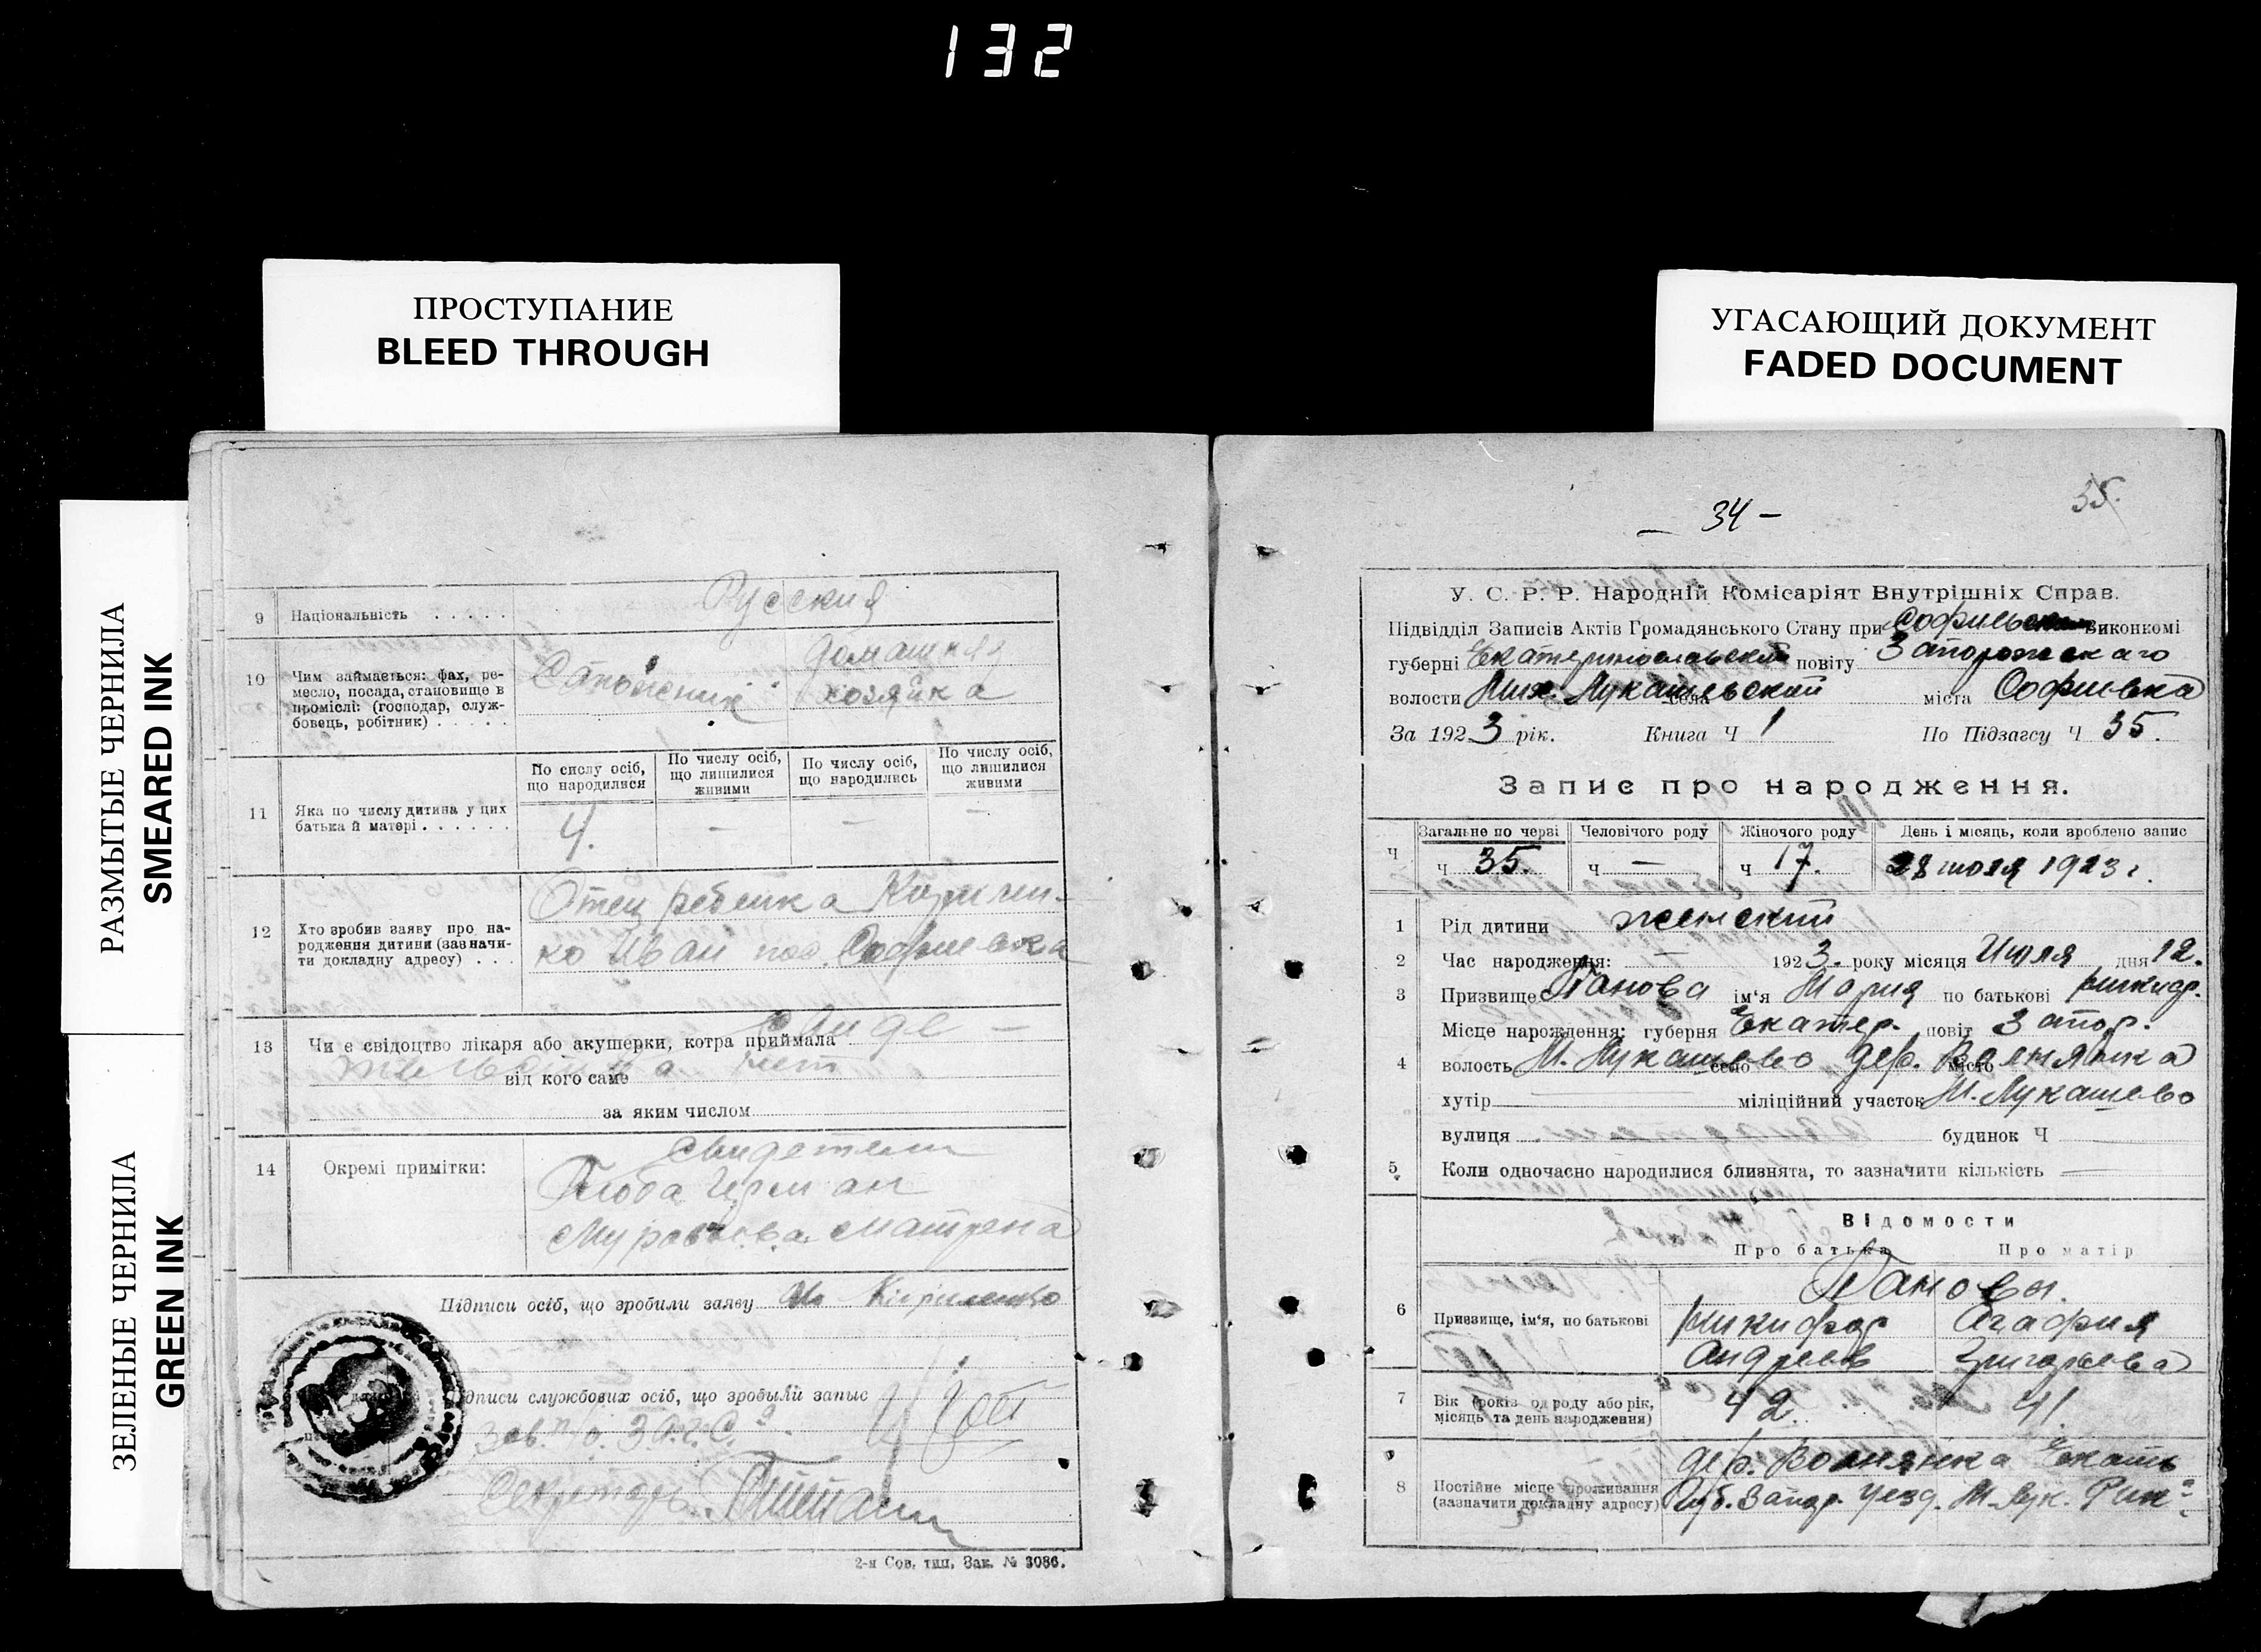 132
ПРОСТУПАНИЕ
BLEED THROUGH
УГАСАЮЩИЙ ДОКУМЕНТ
FADED DOCUMENT
РАЗМЫТЫЕ ЧЕРНИЛА
SMEARED INK
ЗЕЛЕНЫЕ ЧЕРНИЛА
GREEN INK
9 Національність Русския
10 Чим займається: фах, ре-
месло, посада, становище в
проміслі: (господар, служ-
бовець, робітник)
Сапожник
домашняя
хозяйка
11 Яка по числу дитина у цих
батька й матері
По сислу осіб,
що народилися
По числу осіб,
що лишилися
живими
По числу осіб,
що народились
По числу осіб,
що лишилися
живими
4. — — —
12 Хто зробив заяву про на-
родження дитини (зазначи-
ти докладну адресу)
Отец ребенка
ко Иван пос. Софиевка
13 Чи є свідоцтво лікаря або акушерки, котра приймала свиде-
тельства нет
від кого саме
за яким числом
14 Окремі примітки:
Свидетели
Глоба Герман
Матрена
Підписи осіб, що зробили заяву Кириленко
Підписи службових осіб, що зробылй запыс
Зав. п/о. З.А.Г.С.
Секретарь
2-я Сов. тип. Зак. № 3086.
35.
— 34 —
У. С. Р. Р. Народній Комісаріят Внутрішніх Справ.
Підвідділ Записів Актів Громадянського Стану при виконкомі
губерні Екатеринославский повіту Запорожскаго
волости Мих. Лукашевский села міста Софиевка
За 1923 рік. Книга Ч 1 По Підзагсу Ч 35.
Запис про народження.
Ч Загальне по черві Человічого роду Жіночого роду День і місяць, коли зроблено запис
ч 35. ч — ч 17. 28 июля 1923 г.
1 Рід дитини женский
2 Час народження: — 1923. року місяця Июля дня 12.
3 Призвище Панова ім'я Мария по батькові Никиф.
4 Місце нарождення: губерня Екатер. повіт Запор.
волость М. Лукашево село дер. місто Вольнянка
хутір міліційний участок М. Лукашево
вулиця будинок Ч
5 Коли одночасно народилися близнята, то зазначити кількість
Відомости
Про батька Про матір
6 Призвище, ім'я, по батькові
Пановы.
Никифор Агафия
Андреев Григорьева
7 Вік (років од роду або рік,
місяць та день народження)
42. 41.
8 Постійне місце проживання
(зазначити докладну адресу)
дер. Вольнянка Екать
Губ. Запор. уезд. М-Лук. Рик